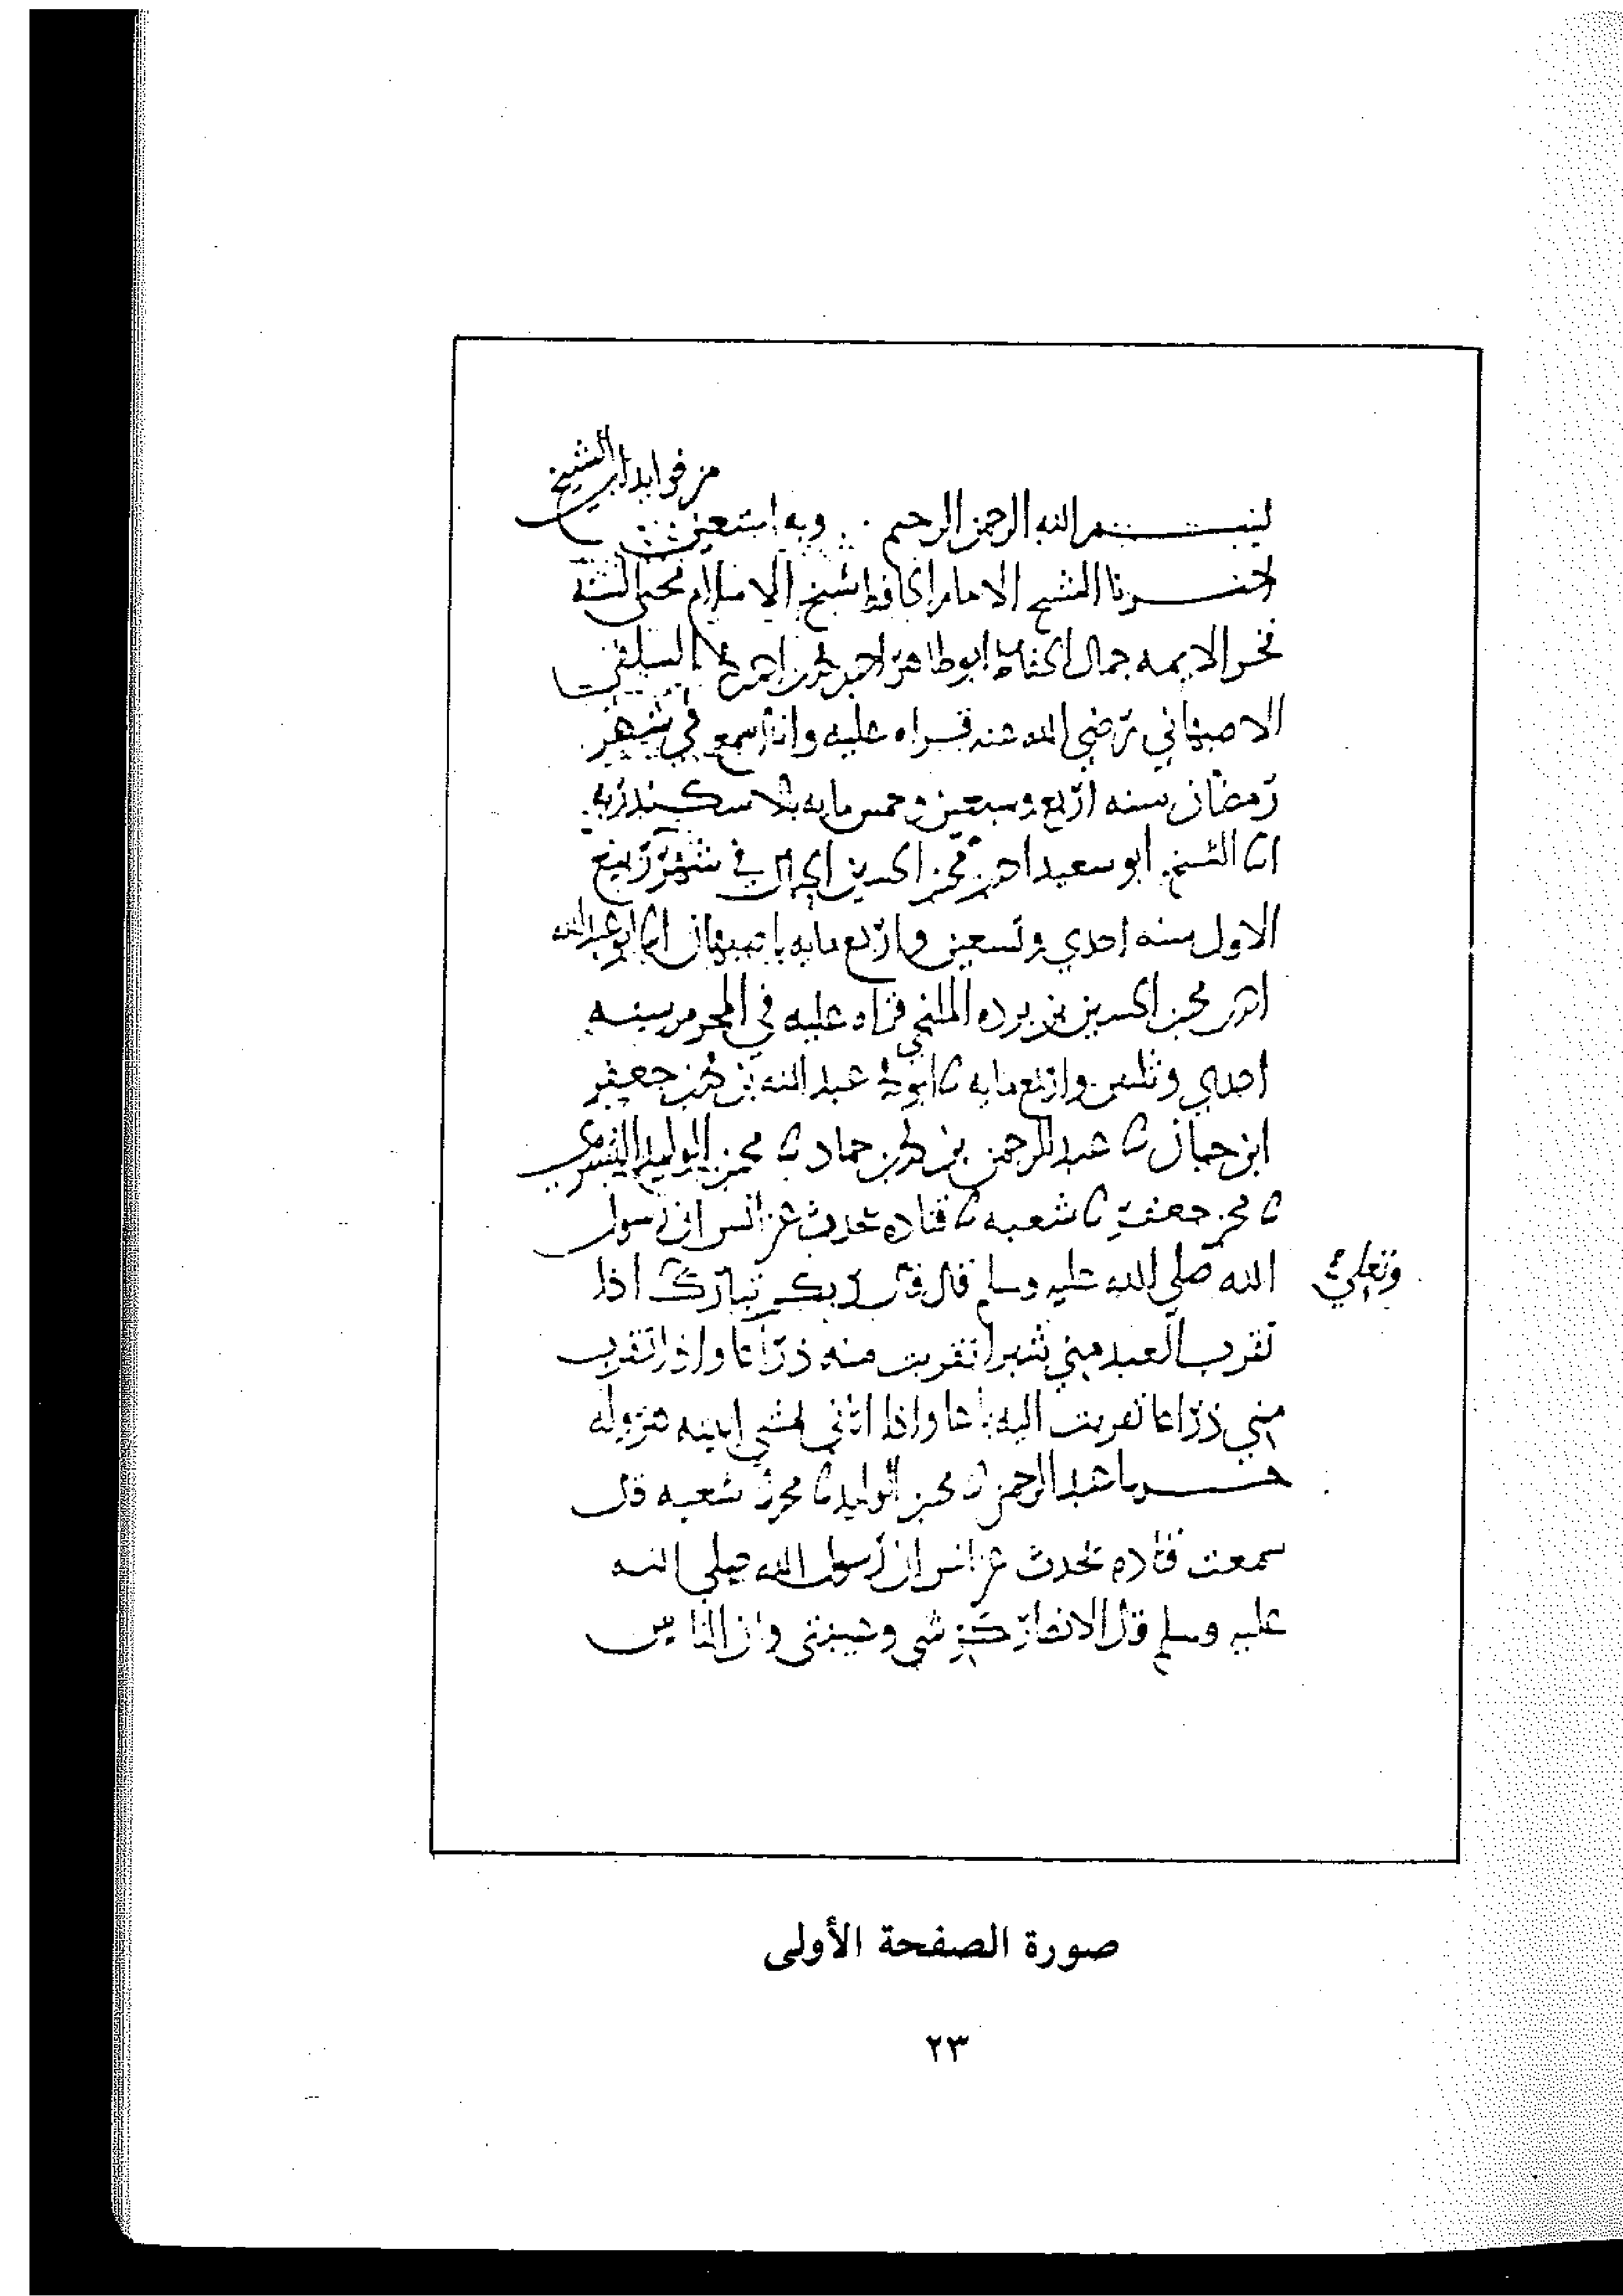 من فوايد ابي الشيخ
بسم الله الرحمن الرحيم وبه استعين
اخبرنا الشيخ الامام الحافظ شيخ الاسلام محيي السنة
فخر الايمه جمال الحفاظ ابو طاهر احمد بن محمد بن احمد السلفي
الاصبهاني رضي الله عنه قراه عليه وانا اسمع في شهر
رمضان سنه اربع وسبعين وخمس مايه بالاسكندريه
انا الشيخ ابو سعيد احمد بن محمد بن الحسين في شهر ربيع
الاول سنه احدي وتسعين واربع مايه باصبهان انا ابو عبد الله
احمد بن محمد بن الحسين بن برده الملنجي قراه عليه في المحرم سنه
احدي وثلثين واربع مايه نا ابو محمد عبد الله بن محمد بن جعفر
ابن حيان نا عبد الرحمن بن محمد بن حماد نا محمد بن الوليد البسري
نا محمد بن جعفر نا شعبه نا قتاده يحدث عن انس ان رسول
الله صلي الله عليه وسلم قال قال ربكم تبارك اذا
وتعلي
تقرب العبد مني شبرا تقربت منه ذراعا واذا تقرب
مني ذراعا تقربت اليه باعا واذا اتاني يمشي اتيته هروله
حدثنا عبد الرحمن نا محمد بن الوليد نا محمد نا شعبه قال
سمعت قتاده يحدث عن انس ان رسول الله صلي الله
عليه وسلم قال الانصار كرشي وعيبتي وان الناس
صورة الصفحة الأولى
٢٣